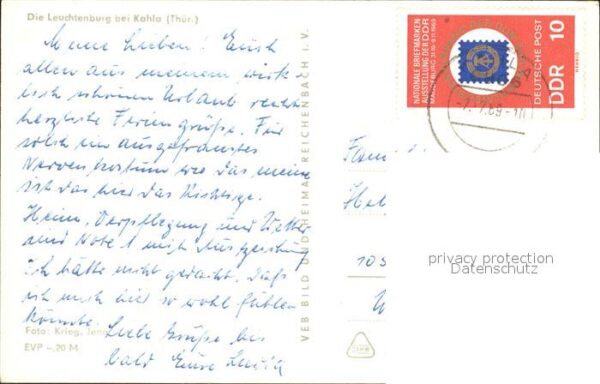 Die Leuchtenburg bei Kahla (Thür.)
Meine Lieben! Euch
allen aus meinem wirk-
lich schönen Urlaub recht
herzliche Feriengrüße. Für
solch ein ausgefranstes
Nervenkostüm wie das meine
ist das hier das Richtige.
Heim, Verpflegung und Wetter
sind Note 1 mit Auszeichnung
Ich hätte nicht gedacht, daß
ich mich hier so wohl fühlen
könnte.
Liebe Grüße bis
bald Eure
Foto: Krieg, Jena
EVP -,20 M
VEB BILD UND HEIMAT REICHENBACH I. V.
NATIONALE BRIEFMARKEN-
AUSSTELLUNG DER DDR
MAGDEBURG 31.10.-9.11.1969
DEUTSCHE POST
DDR 10
-7.7.69-
Fam
privacy protection
Datenschutz